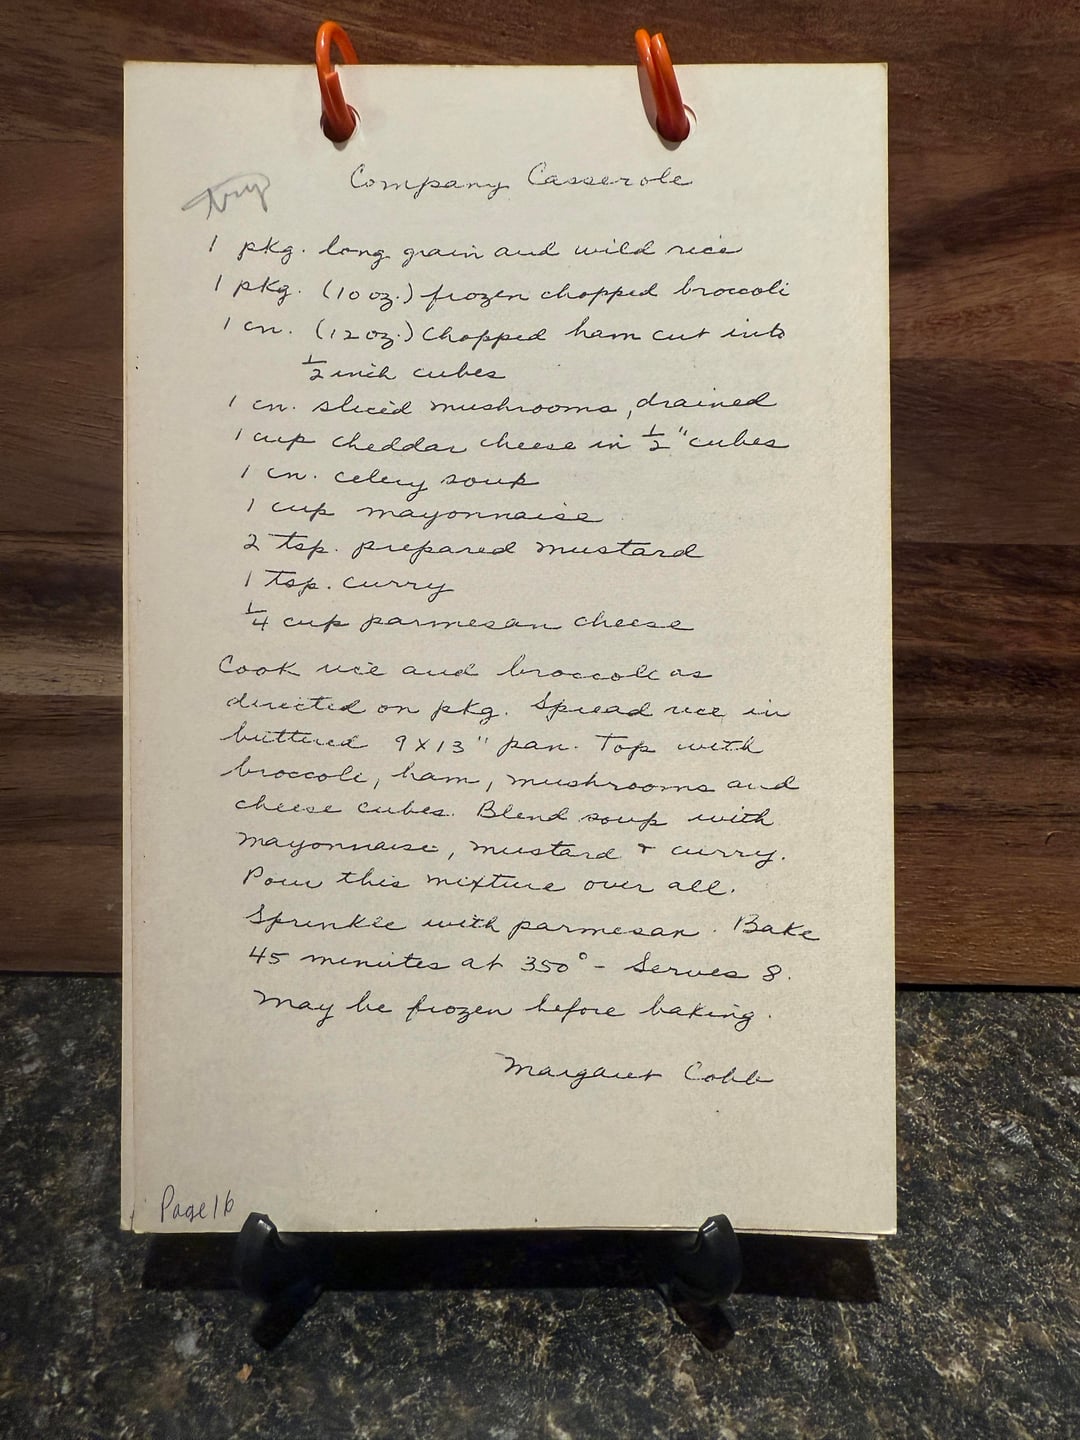 Company Casserole
try
1 pkg. long grain and wild rice
1 pkg. (10 oz.) frozen chopped broccoli
1 cn. (12 oz.) chopped ham cut into
1/2 inch cubes
1 cn. sliced mushrooms, drained
1 cup cheddar cheese in 1/2" cubes
1 cn. celery soup
1 cup mayonnaise
2 tsp. prepared mustard
1 tsp. curry
1/4 cup parmesan cheese
Cook rice and broccoli as
directed on pkg. Spread rice in
buttered 9x13" pan. Top with
broccoli, ham, mushrooms and
cheese cubes. Blend soup with
mayonnaise, mustard + curry.
Pour this mixture over all.
Sprinkle with parmesan. Bake
45 minutes at 350° - Serves 8.
May be frozen before baking.
Margaret Cobb
Page 16